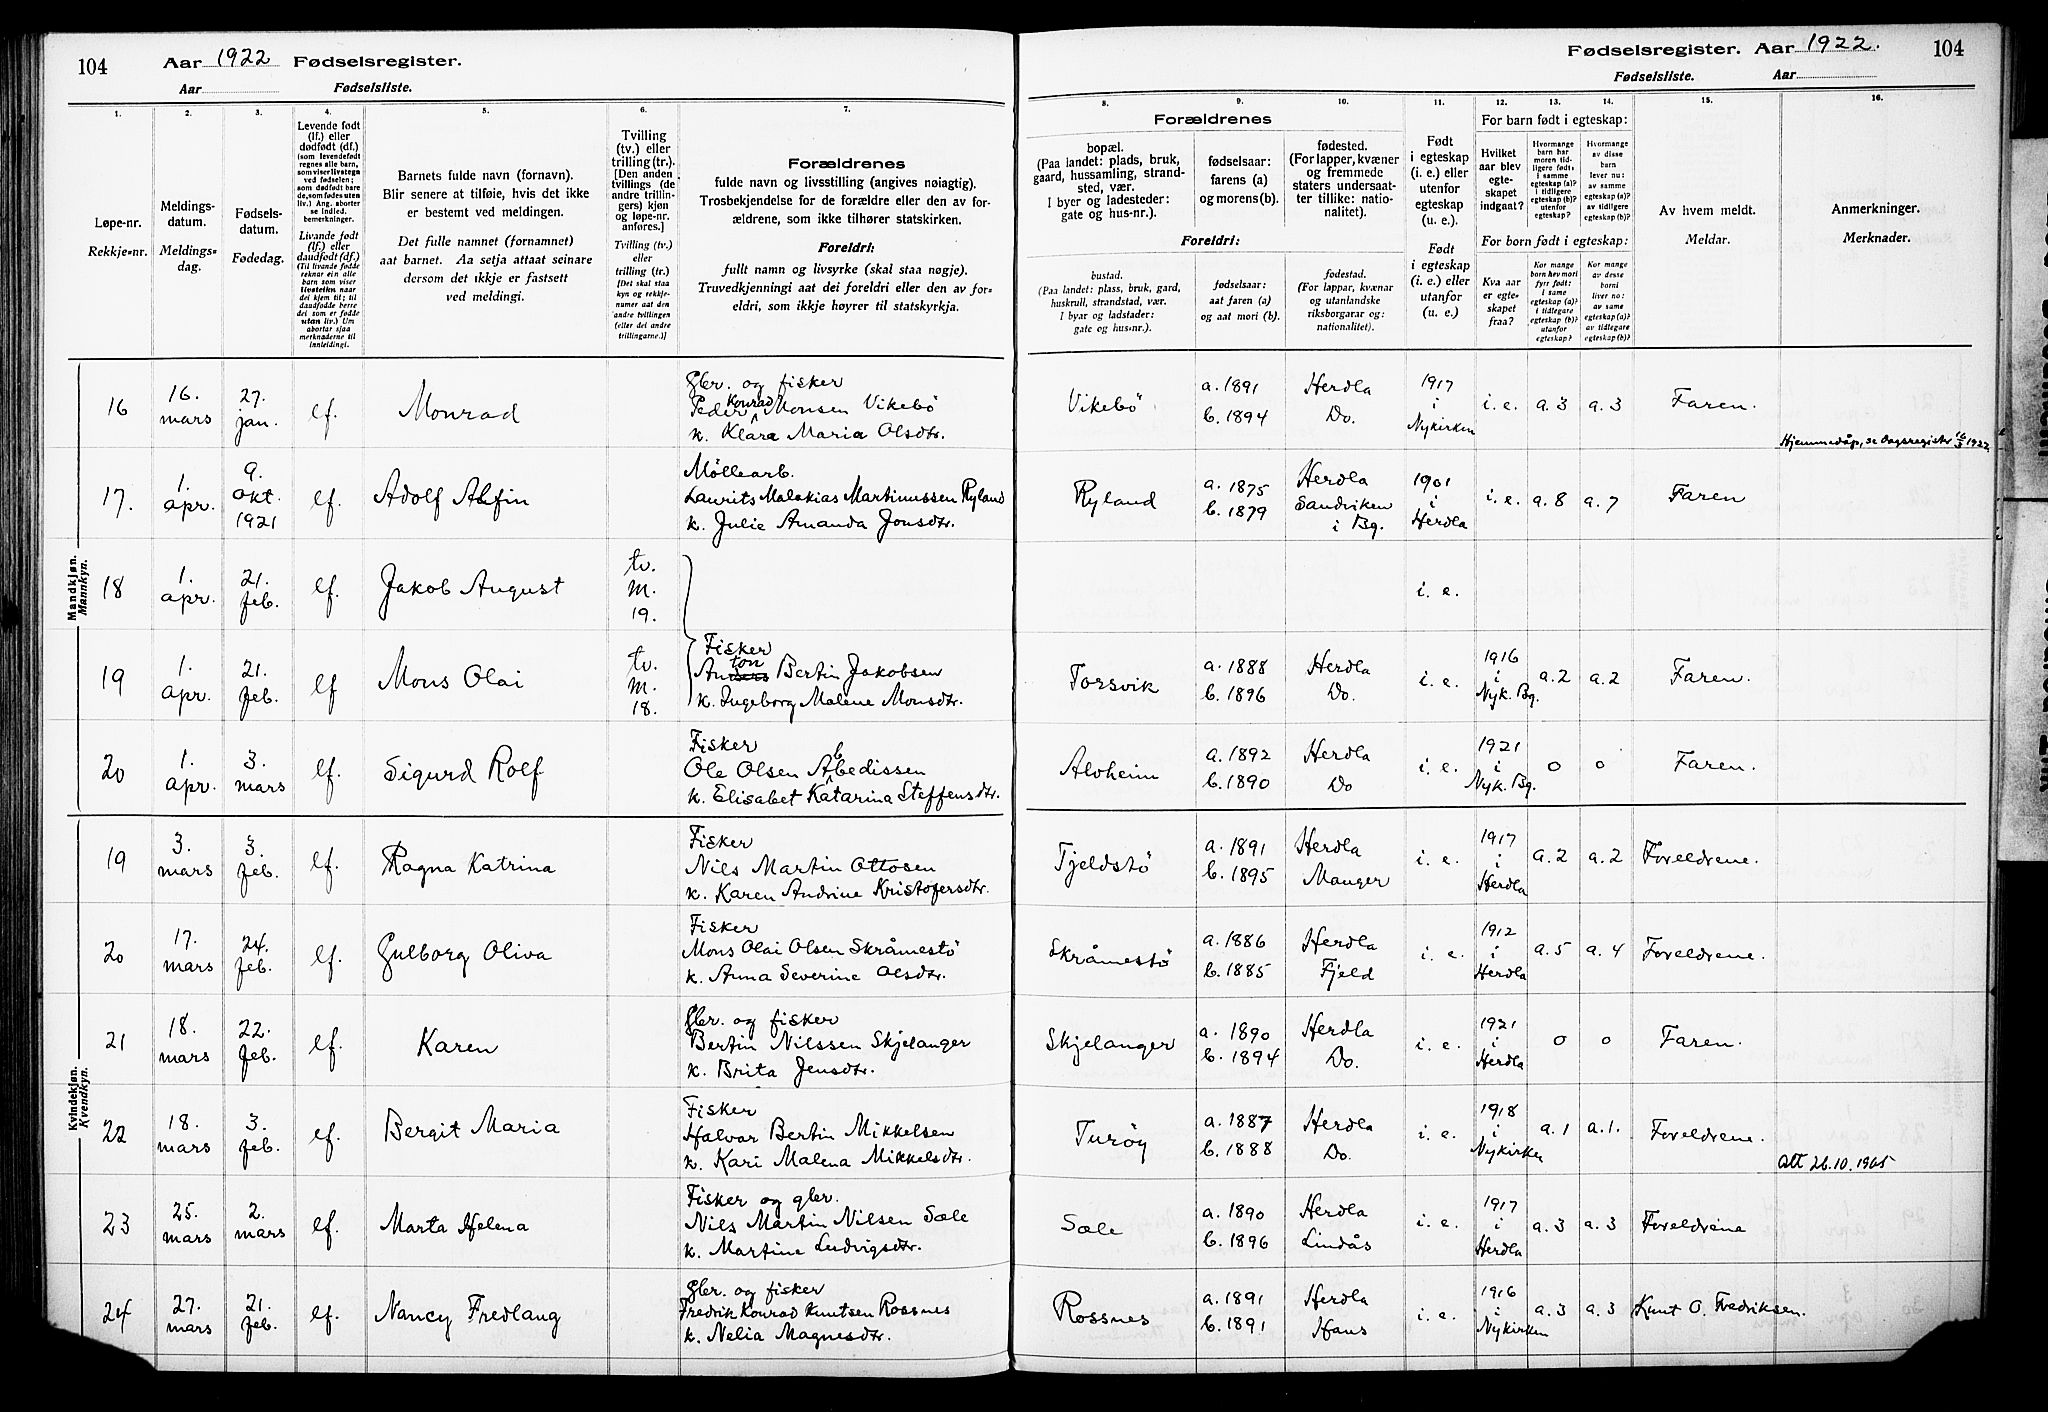 104 Aar 1922 Fødselsregister.
Aar Fødselsliste.
Fødselsregister. Aar 1922. 104
Fødselsliste. Aar
1. 2. 3. 4. 5. 6. 7.
8. 9. 10. 11. 12. 13. 14. 15. 16.
Løpe-nr.
Rekkje-nr.
Meldings-
datum.
Meldings-
dag.
Fødsels-
datum.
Fødedag.
Levende født
(lf.) eller
dødfødt (df.)
(som levendefødt
regnes alle barn,
som viser livstegn
ved fødselen;
som dødfødt bare
de, som fødes uten
liv.) Ang. aborter
se indled.
bemerkninger.
Livande født
(lf.) eller
daudfødt (df.)
(Til livande fødde
reknar ein alle
barn som viser
livsteikn naar
dei kjem til; til
daudfødde berre
dei som er fødde
utan liv.) Um
abortar sjaa
merknaderne til
innleidingi.
Barnets fulde navn (fornavn).
Blir senere at tilføie, hvis det ikke
er bestemt ved meldingen.
Det fulle namnet (fornamnet)
aat barnet. Aa setja attaat seinare
dersom det ikkje er fastsett
ved meldingi.
Tvilling
(tv.) eller
trilling (tr.).
[Den anden
tvillings (de
andre trillin-
gers) kjøn
og løpe-nr.
anføres.]
Tvilling (tv.)
eller
trilling (tr.)
[Det skal staa
kyn og rekkje-
numer aat den
andre tvillingen
(eller dei andre
trillingarne.)]
Forældrenes
fulde navn og livsstilling (angives nøiagtig).
Trosbekjendelse for de forældre eller den av for-
ældrene, som ikke tilhører statskirken.
Foreldri:
fullt namn og livsyrke (skal staa nøgje).
Truvedkjenningi aat dei foreldri eller den av for-
eldri, som ikkje høyrer til statskyrkja.
Forældrenes
bopæl.
(Paa landet: plads, bruk,
gaard, hussamling, strand-
sted, vær.
I byer og ladesteder:
gate og hus-nr.).
fødselsaar:
farens (a)
og morens (b).
fødested.
(For lapper, kvæner
og fremmede
staters undersaat-
ter tillike: natio-
nalitet).
Foreldri:
bustad.
(Paa landet: plass, bruk, gard,
huskrull, strandstad, vær.
I byar og ladstader:
gate og hus-nr.).
fødselsaar:
aat faren (a)
og aat mori (b).
fødestad.
(For lappar, kvænar
og utanlandske
riksborgarar og:
nationalitet).
Født
i egteskap
(i. e.) eller
utenfor
egteskap
(u. e.).
Født
i egteskap
(i. e.) eller
utanfor
(u. e.)
For barn født i egteskap:
Hvilket
aar blev
egte-
skapet
indgaat?
Hvormange
barn har
moren tid-
ligere født:
i samme
egteskap (a)?
i tidligere
egteskap (b)?
utenfor
egteskap?
Hvormange
av disse
barn
lever nu:
av samme
egteskap (a)?
av tidligere
egteskap (b)?
For born født i egteskap:
Kva aar
er egte-
skapet
fraa?
Kor mange
born hev mori
fyrr født:
i same
egteskap (a)?
i tidlegare
egteskap (b)?
utanfor
egteskap?
Kor mange
av desse
borni
liver no:
av same
egteskap (a)?
av tidlegare
egteskap (b)?
Av hvem meldt.
Meldar.
Anmerkninger.
Merknader.
Mandkjøn.
Mannkyn.
16 16. mars 27. jan. lf. Monrad
Gbr. og fisker
Peder Konrad Monsen Vikebö
k. Klara Maria Olsdtr.
Vikebö a. 1891 b. 1894 Herdla Do. 1917 i Nykirken i. e. a. 3 a. 3 Faren.
Hjemmedåp, se Dagsregistr 16/3 1922
17. 1. apr. 9. okt. 1921 lf. Adolf Alfin
Möllearb.
Laurits Malakias Martinussen Ryland
k. Julie Amanda Jonsdtr.
Ryland a. 1875 b. 1879 Herdla Sandviken i Bg. 1901 i Herdla i. e. a. 8 a. 7 Faren
18 1. apr. 21. feb. lf. Jakob August tv. m. 19. i. e.
19 1. apr. 21. feb. lf Mons Olai tv. m. 18.
Fisker
Anders ton Bertin Jakobsen
k. Ingeborg Malene Monsdtr.
Torsvik a. 1888 b. 1896 Herdla Do. i. e. 1916 i Nyk. Bg. a. 2 a. 2 Faren.
20 1. apr. 3. mars lf. Sigurd Rolf
Fisker
Ole Olsen Abedissen
k. Elisabet Katarina Steffensdtr.
Alvheim a. 1892 b. 1890 Herdla Do i. e. 1921 i Nyk. Bg. o o Faren.
Kvindekjøn.
Kvendkyn.
19 3. mars 3. feb. lf. Ragna Katrina
Fisker
Nils Martin Ottosen
k. Karen Andrine Kristofersdtr.
Tjeldstö a. 1891 b. 1895 Herdla Manger i. e. 1917 i Herdla a. 2 a. 2 Foreldrene.
20 17. mars 24. feb. lf. Gulborg Oliva
Fisker
Mons Olai Olsen Skråmestö
k. Anna Severine Olsdtr.
Skråmestö a. 1886 b. 1885 Herdla Fjeld i. e. 1912 i Herdla a. 5 a. 4 Foreldrene.
21 18. mars 22. feb. lf. Karen
Gbr. og fisker
Bertin Nilssen Skjelanger
k. Brita Jensdtr.
Skjelanger a. 1890 b. 1894 Herdla Do. i. e. 1921 i Herdla o o Faren.
22 18. mars 3. feb. lf. Bergit Maria
Fisker
Halvar Bertin Mikkelsen
k. Kari Malena Mikkelsdtr.
Turöy a. 1887 b. 1888 Herdla Do. i. e. 1918 i Nykirken a. 1 a. 1. Foreldrene.
Att 26.10.1965
23 25. mars 2. mars lf. Marta Helena
Fisker og gbr.
Nils Martin Nilsen Sæle
k. Martine Ludvigsdtr.
Sæle a. 1890 b. 1896 Herdla Lindås i. e. 1917 i Herdla a. 3 a. 3 Foreldrene
24 27. mars 21. feb. lf. Nancy Fredlaug
Gbr. og fisker
Fredrik Konrad Knutsen Rossnes
k. Nelia Magnesdtr.
Rossnes a. 1891 b. 1891 Herdla Haus i. e. 1916 i Nykirken a. 3 a. 3 Knut O. Fredriksen.